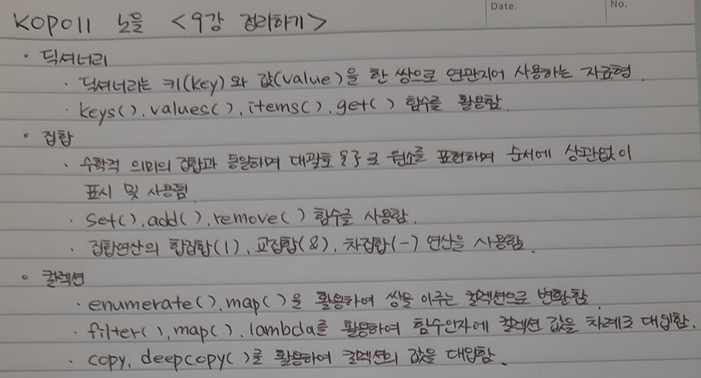 Date.
No.
KOPO11 노을 <9강 정리하기>
· 딕셔너리
· 딕셔너리는 키(key)와 값(value)을 한 쌍으로 연관지어 사용하는 자료형.
· keys(), values(), items(), get() 함수를 활용함.
· 집합
· 수학적 의미의 집합과 동일하며 대괄호 { }로 원소를 표현하며 순서에 상관없이
표시 및 사용됨.
· set(), add(), remove() 함수를 사용함.
· 집합연산의 합집합(|), 교집합(&), 차집합(-) 연산을 사용함.
· 컬렉션
· enumerate(), map()을 활용하여 쌍을 이루는 컬렉션으로 변환함.
· filter(), map(), lambda를 활용하여 함수인자에 컬렉션 값을 차례로 대입함.
· copy, deepcopy()를 활용하여 컬렉션의 값을 대입함.